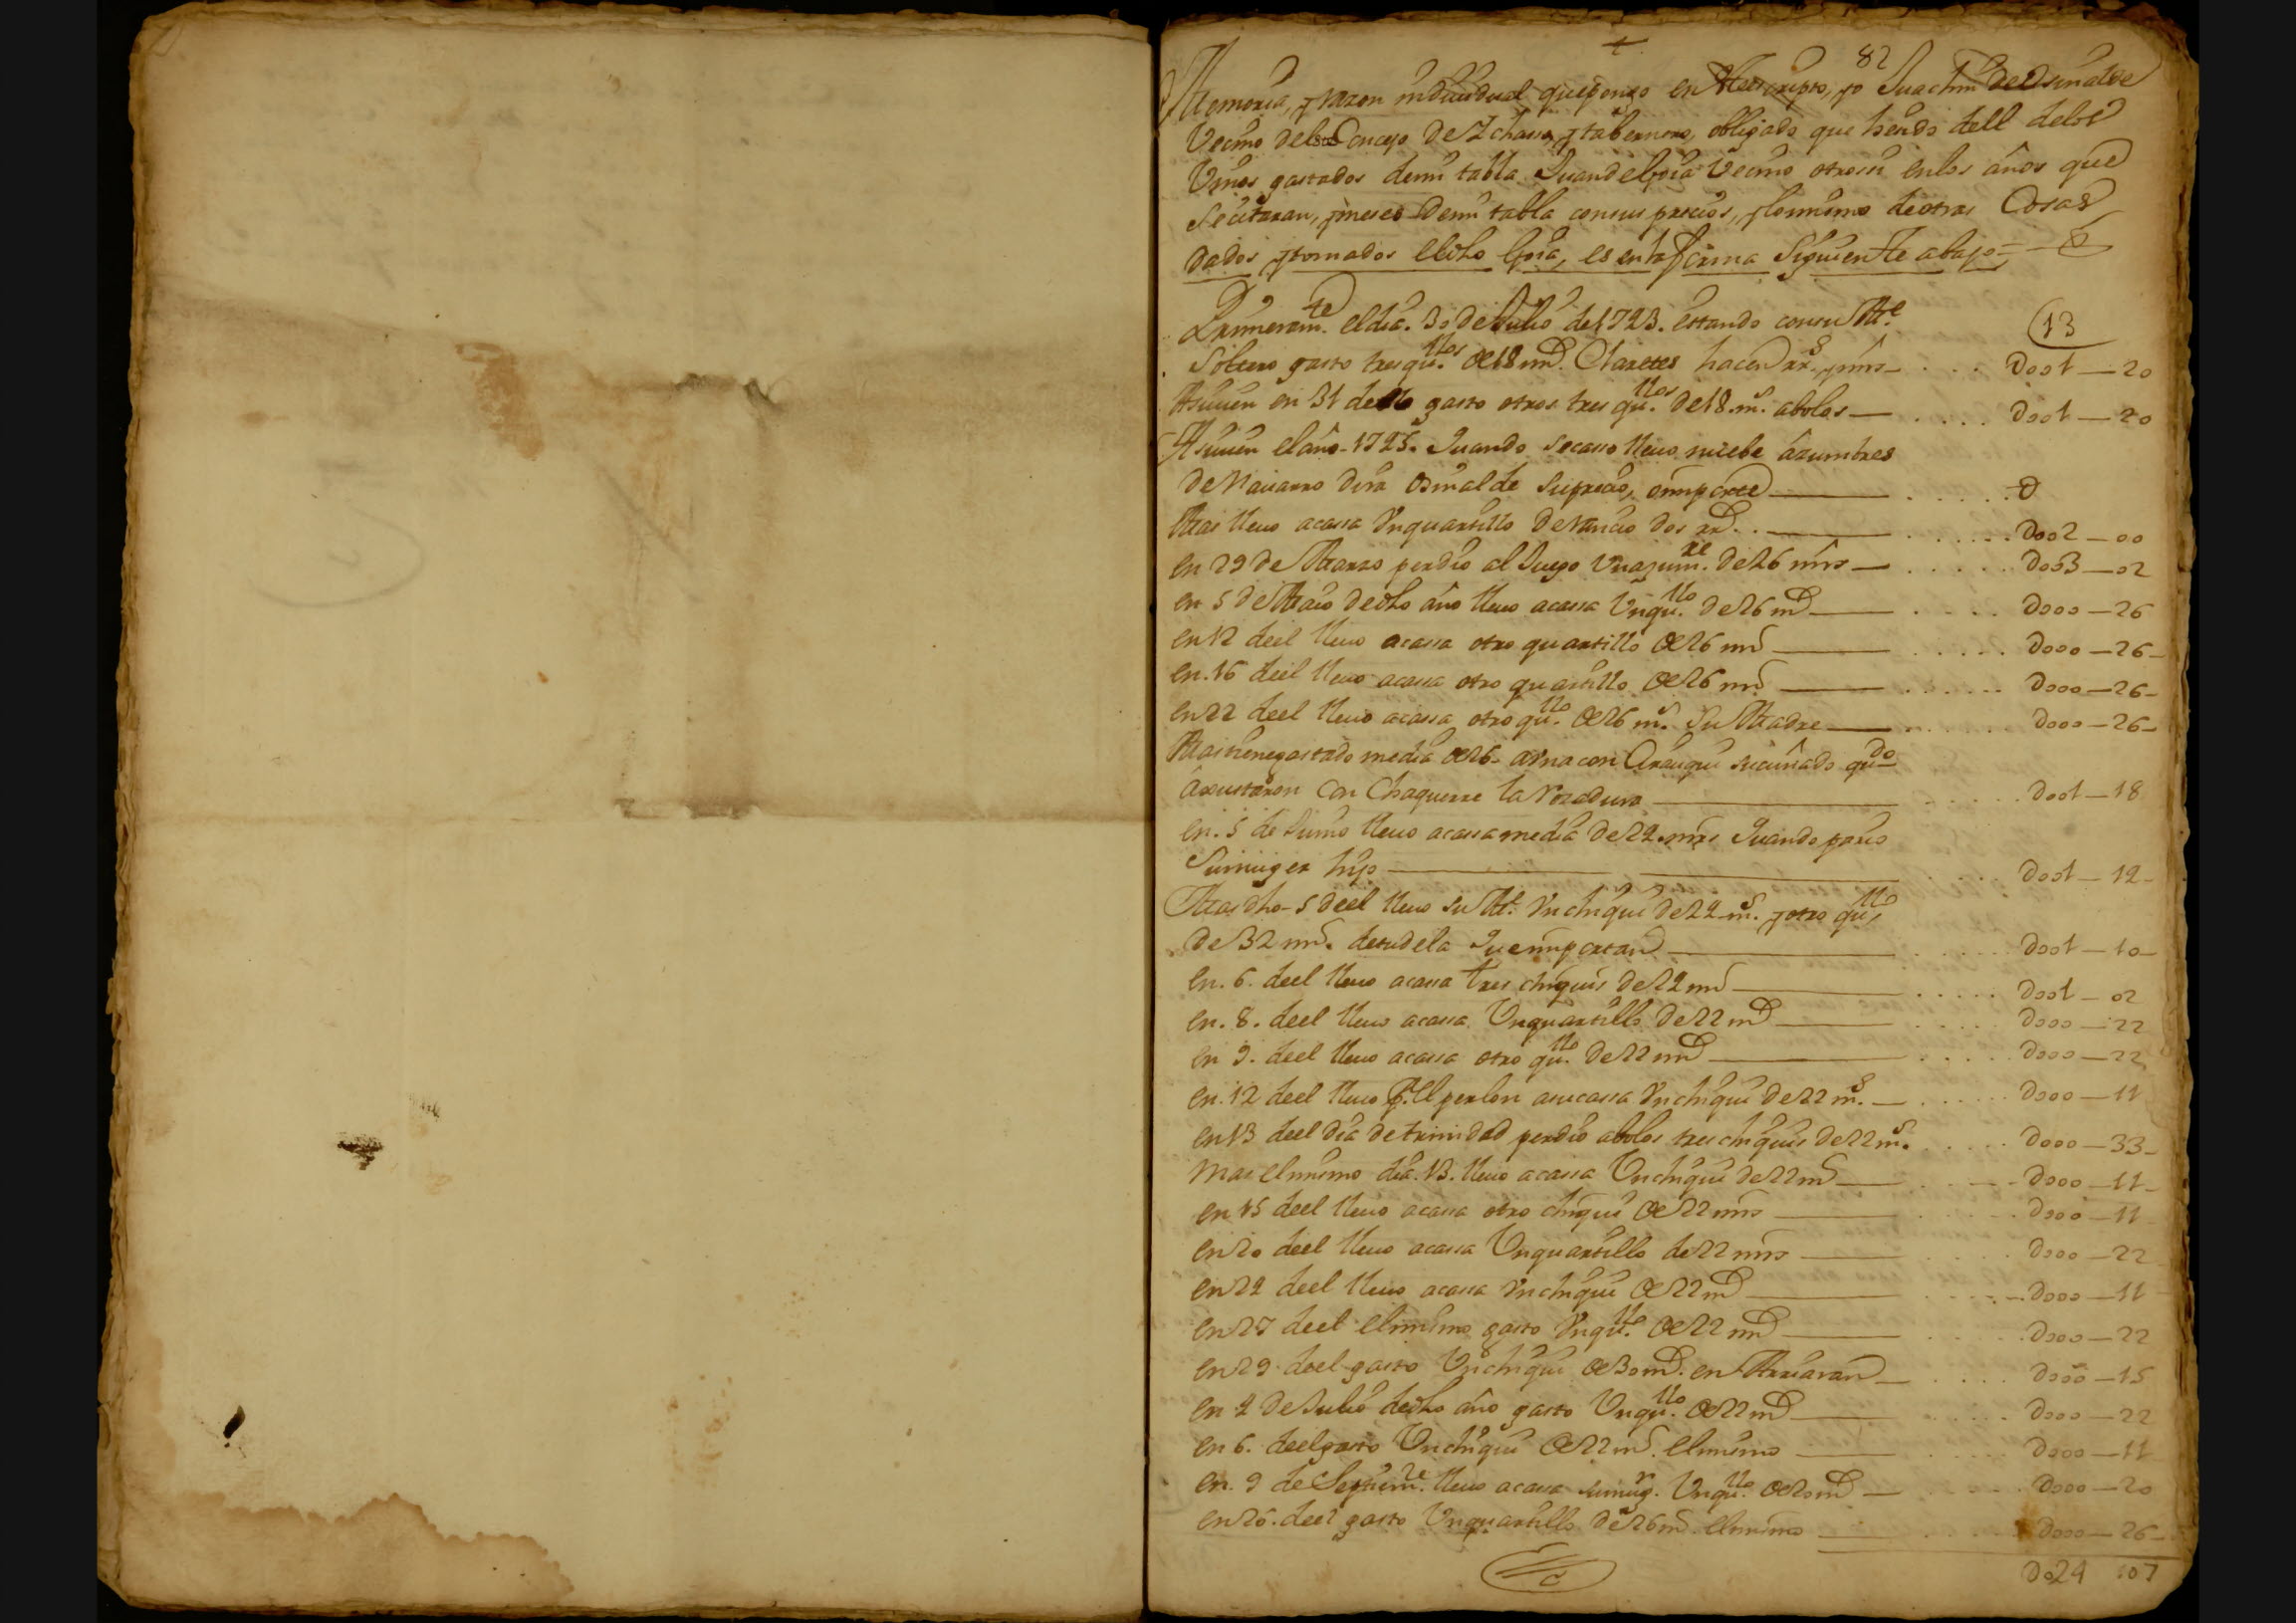 82
Memoria, y razon indiuidual que pongo en escripto, yo Juachin de Osinalde
Vecino del Concejo de Ichasso, y tabernero, obligado que siendo dell delos
Vinos gastados demi tabla Juan de Goia Vecino otrossi enlos años que
se citaran, y meses demi tabla consus precios, y lo mismo de otras Cosas
dados y tomados el dho Goia, es enla forma siguiente abajo =
Primeram.te el dia. 30 de Julio de 1723. estando consu M.e 13
Soltero gasto tres qu.llos de 18 mrs. Claretes hacen rr.s y mrs D001—20
Assimen en 31 de el gasto otros tres qu.llos de 18. m.s abolos— D001—20
Assimen el año 1725. Quando se casso lleuo nuebe azumbres
de Nauarro dira Osinalde su precio, o importe
Mas lleuo acassa Vn quartillo de Rancio dos rr.s D002—00
en 29 de Marzo perdio al Juego Vn azum.re de 26 mrs— D003—02
en 5 de Maio de dho año lleuo acassa Vn qu.llo de 26 mrs D000—26
en 12 deel lleuo acassa otro quartillo de 26 mrs D000—26
en. 16 deel lleuo acassa otro quartillo de 26 mrs D000—26
en 22 deel lleuo acassa otro qu.llo de 26 m.s su Madre D000—26
Mas tiene gastado media de 26. con Arauqui su cuñado qu.do
axustaron con Chaquerre la Rozadura D001—18
en. 5 de Junio lleuo acassa media de 22 mrs Quando pario
su muger hijo D001—12
Mas dho 5 deel lleuo su M.e Vn chiqui de 22 m.s y otro qu.llo
de 32 mrs. de tudela que importan D001—10
en. 6. deel lleuo acassa tres chiquis de 22 mrs D001—02
en. 8. deel lleuo acassa Vn quartillo de 22 mrs D000—22
en 9. deel lleuo acassa otro qu.llo de 22 mrs D000—22
en. 12 deel lleuo asucassa Vn chiqui de 22 m.s D000—11
en 13 deel dia de trinidad perdio abolos tres chiquis de 22 m.s D000—33
mas el mismo dia. 13. lleuo acassa Vn chiqui de 22 mrs D000—11
en 15 deel lleuo acassa otro chiqui de 22 mrs D000—11
en 20 deel lleuo acassa Vn quartillo de 22 mrs D000—22
en 22 deel lleuo acassa Vn chiqui de 22 mrs D000—11
en 27 deel el mismo gasto Vn qu.llo de 22 mrs D000—22
en 29 deel gasto Vn chiqui de 30 mrs. en Arriaran D000—15
en 2 de Julio de dho año gasto Vn qu.llo de 22 mrs D000—22
en 6. deel gasto Vn chiqui de 22 mrs. el mismo D000—11
en. 9 de Septiem.re lleuo acassa su mug.r Vn qu.llo de 20 mrs D000—20
en 26. deel gasto Vn quartillo de 26 mrs el mismo D000—26
D024 107